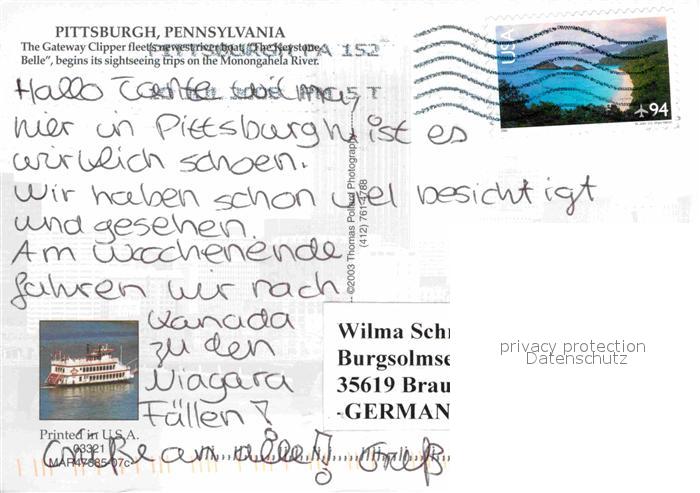 PITTSBURGH, PENNSYLVANIA
The Gateway Clipper fleet's newest river boat, "The Keystone
Belle", begins its sightseeing trips on the Monongahela River.
PITTSBURGH PA 152
USA
94
Hallo Tante Wilma,
hier in Pittsburgh ist es
wirklich schoen.
Wir haben schon viel besichtigt
und gesehen.
Am Wochenende
fahren wir nach
Kanada
zu den
Niagara
Fällen!
Grüße an alle!
©2003 Thomas Pollard Photography
(412) 761-4788
Wilma Schr
Burgsolmse
35619 Brau
-GERMAN
privacy protection
Datenschutz
Printed in U.S.A.
03321